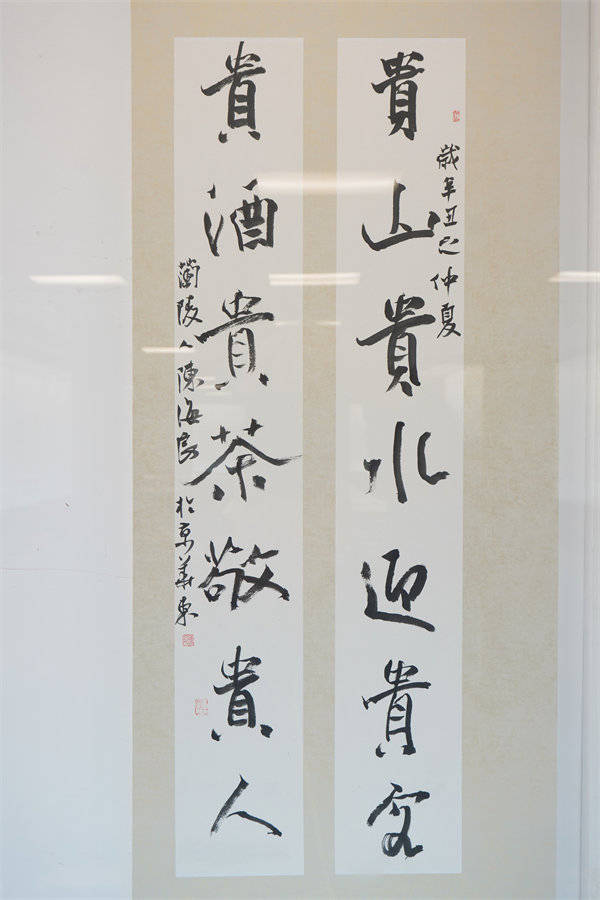 貴山貴水迎貴客
歲辛丑之仲夏
貴酒貴茶敬貴人
蘭陵人陳海良於京華東